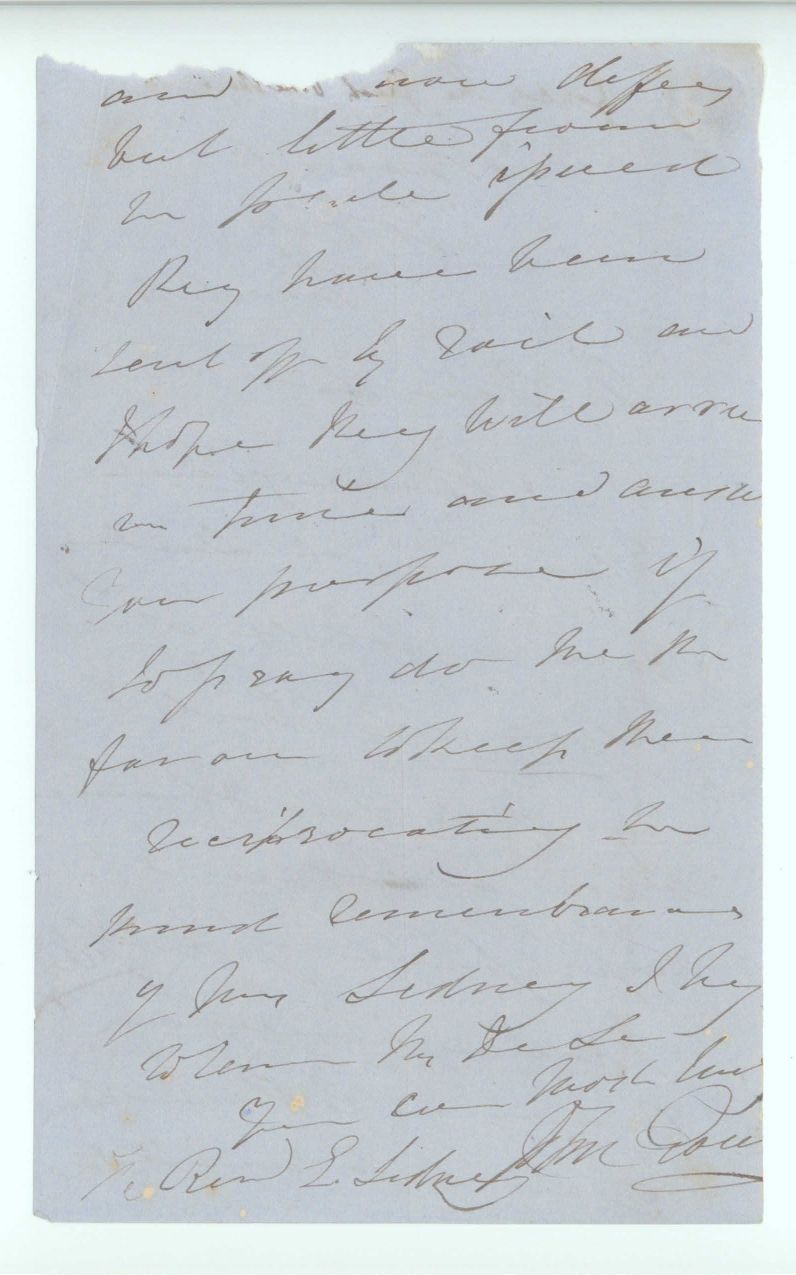 and now differs
but little from
the female
They have been
sent off by rail and
I hope they will arrive
in time and answer
your purpose if
so pray do me the
favour to keep them
reciprocating the
kind remembrances
of Mrs Sidney I beg
to remain My Dear Sir
Your most
The Rev E Sidney John